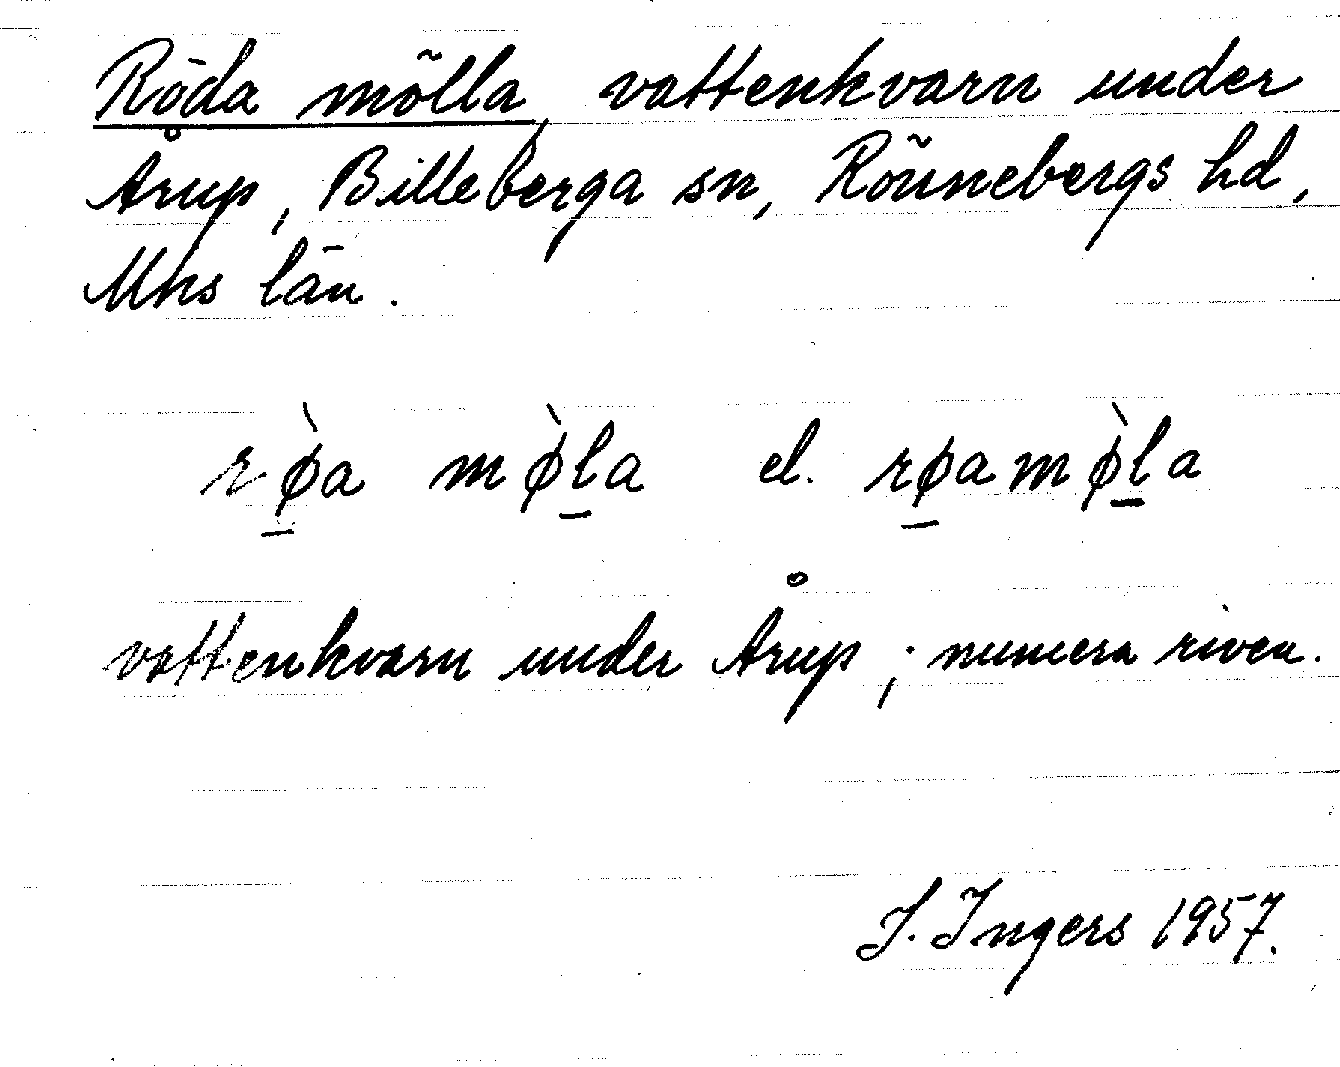 Röda mölla, vattenkvarn under
Årup, Billeberga sn, Rönnebergs hd,
Mhs län.
rø̱̀a mø̀ḻa el. rø̱amø̀ḻa
vattenkvarn under Årup; numera riven.
J. Ingers 1957.